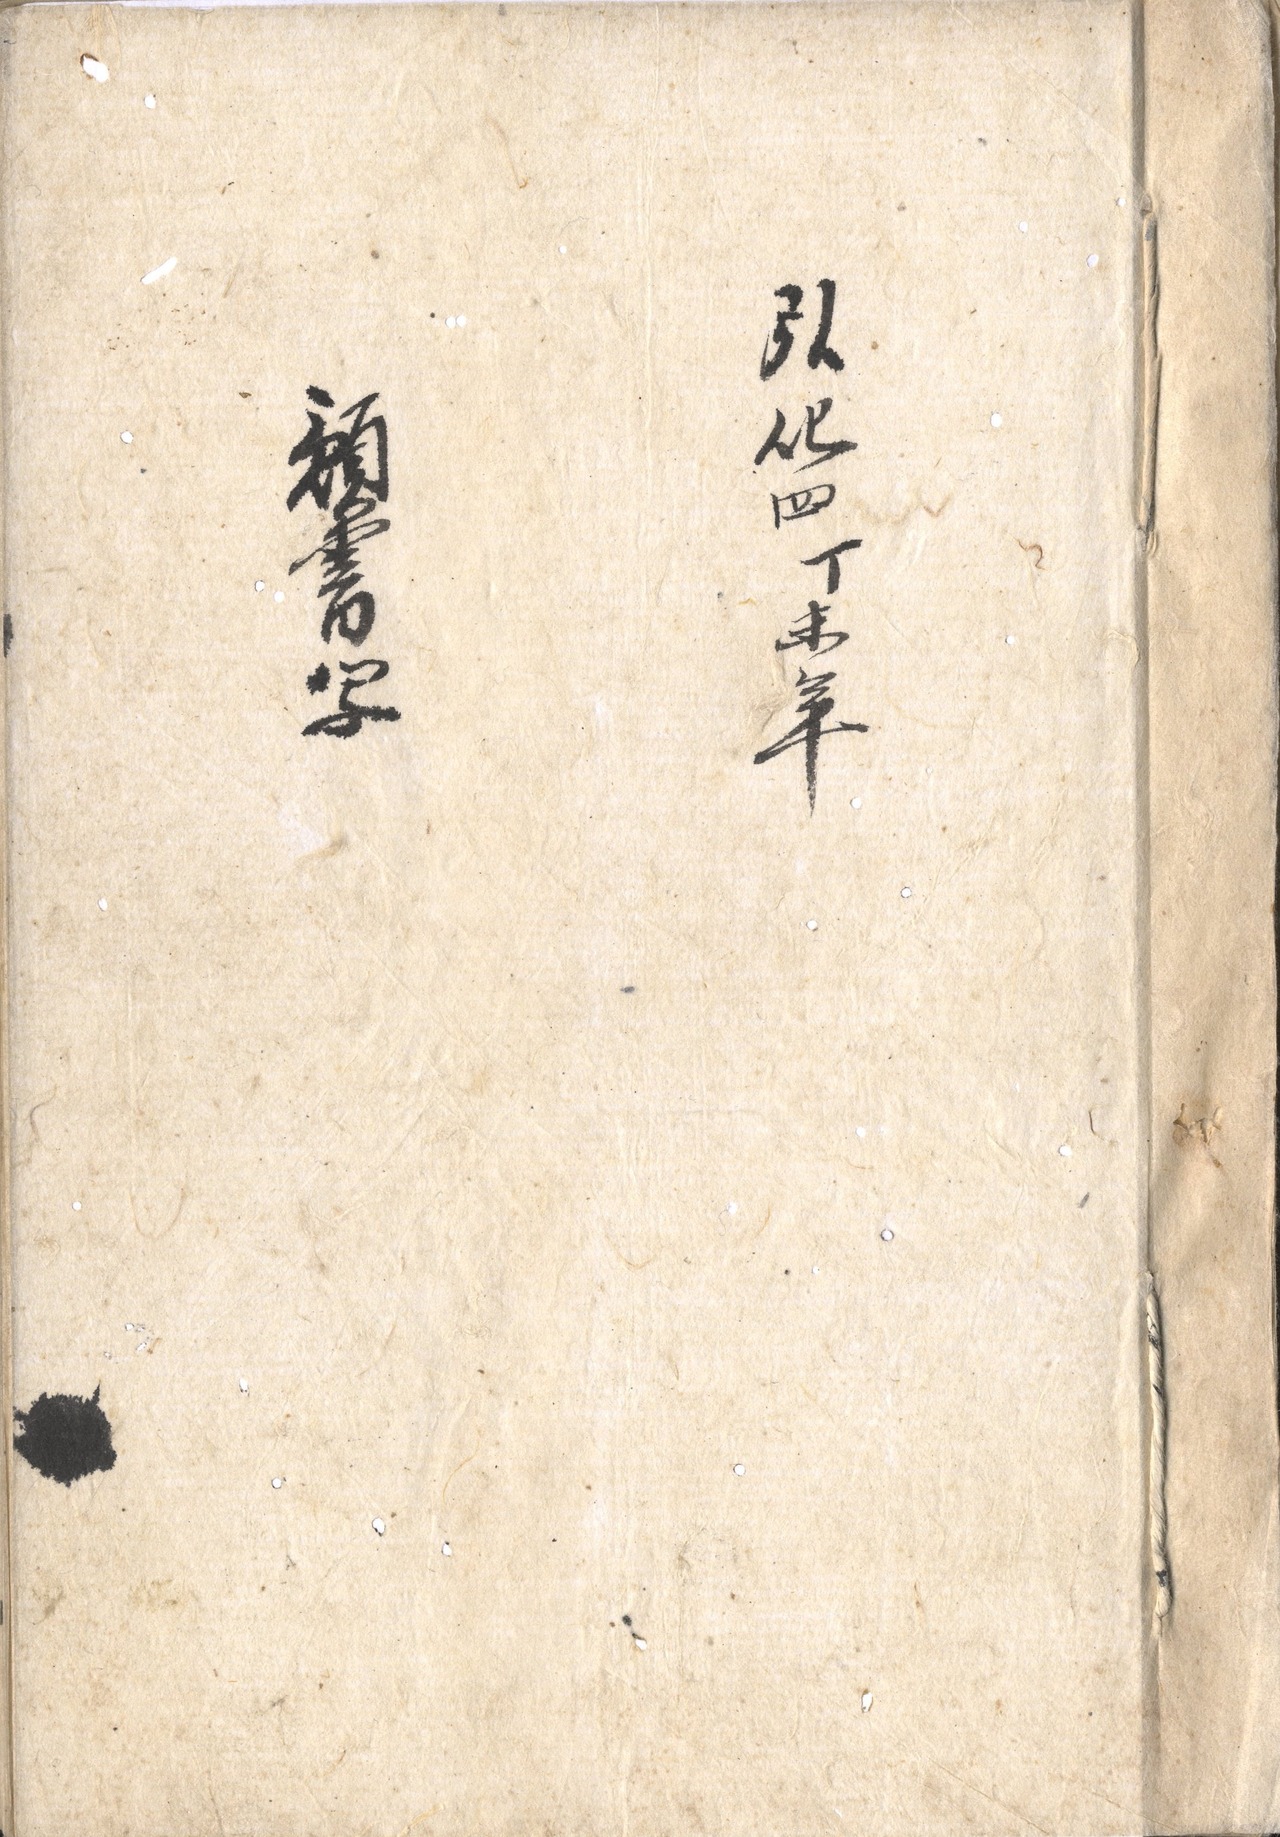 弘化四丁未年
願書写